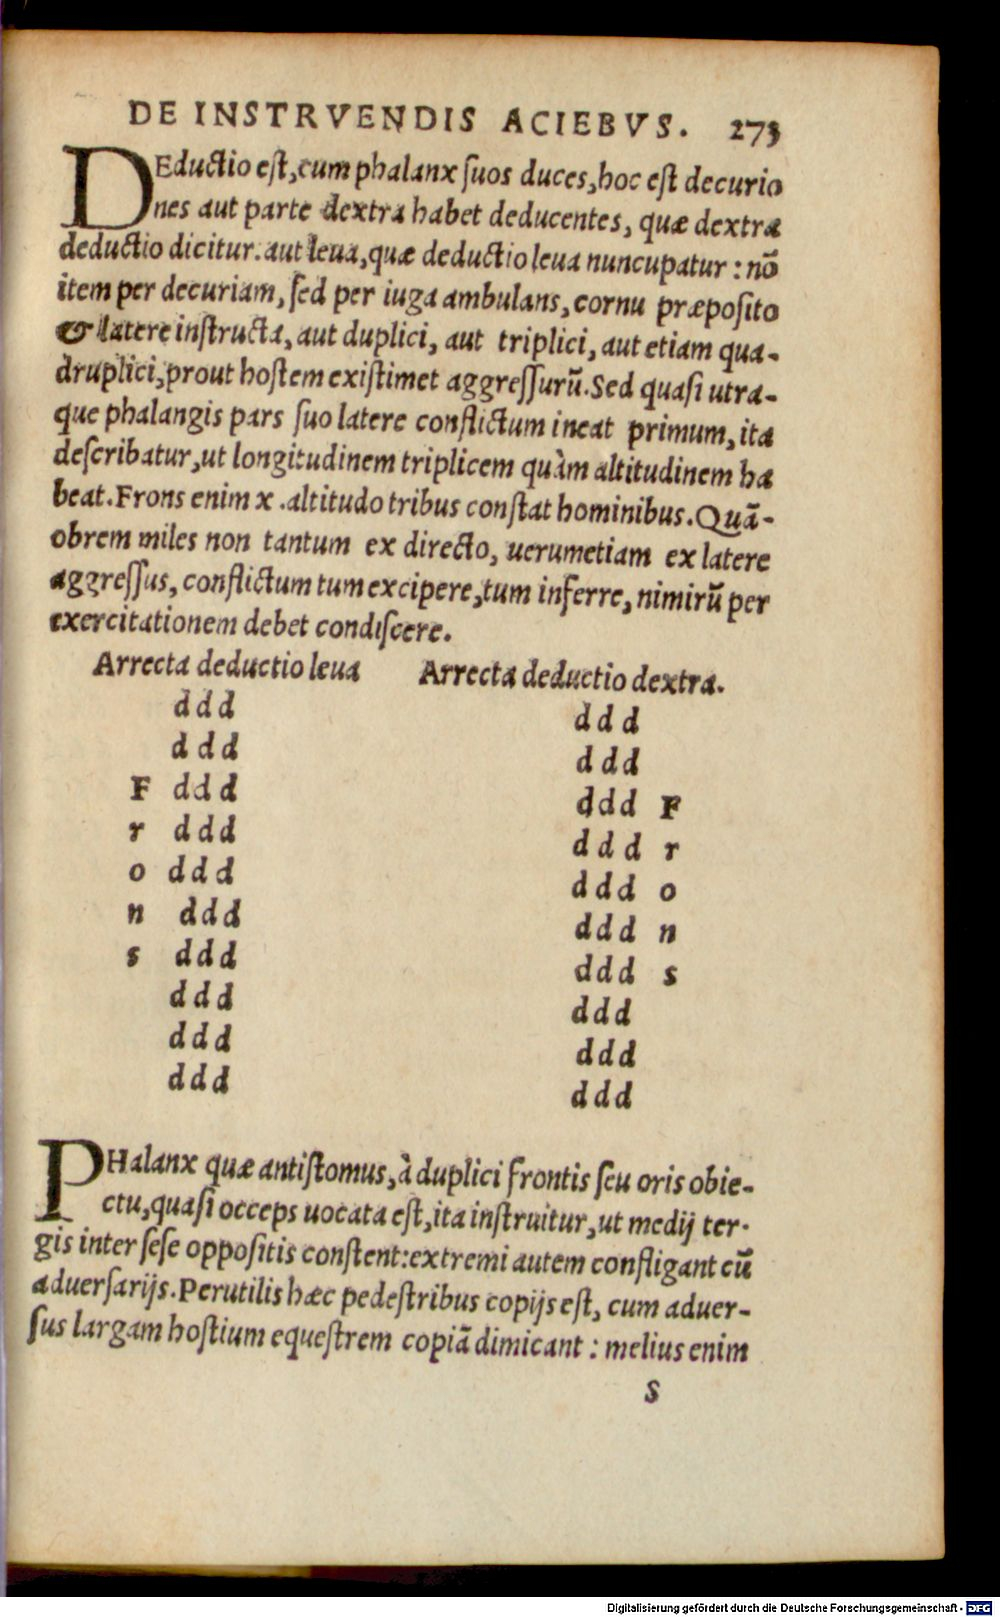 DE INSTRVENDIS ACIEBVS. 273
DEductio eſt,cum phalanx ſuos duces,hoc eſt decurio
nes aut parte dextra habet deducentes, quæ dextra
deductio dicitur.aut leua,quæ deductio leua nuncupatur : nõ
item per decuriam, ſed per iuga ambulans, cornu præpoſito
& latere inſtructa, aut duplici, aut triplici, aut etiam qua-
druplici,prout hoſtem exiſtimet aggreſſurũ.Sed quaſi utra-
que phalangis pars ſuo latere conflictum ineat primum, ita
deſcribatur,ut longitudinem triplicem quàm altitudinem ha
beat.Frons enim x .altitudo tribus conſtat hominibus.Quã-
obrem miles non tantum ex directo, uerumetiam ex latere
aggreſſus, conflictum tum excipere,tum inferre, nimirũ per
exercitationem debet condiſcere.
Arrecta deductio leua Arrecta deductio dextra.
d d d d d d
d d d d d d
F d d d d d d F
r d d d d d d r
o d d d d d d o
n d d d d d d n
s d d d d d d s
d d d d d d
d d d d d d
d d d d d d
PHalanx quæ antiſtomus,à duplici frontis ſeu oris obie-
ctu,quaſi occeps uocata eſt,ita inſtruitur,ut medij ter-
gis inter ſeſe oppoſitis conſtent:extremi autem confligant cũ
aduerſarijs.Perutilis hæc pedeſtribus copijs eſt, cum aduer-
ſus largam hoſtium equeſtrem copiã dimicant : melius enim
S
Digitalisierung gefördert durch die Deutsche Forschungsgemeinschaft - DFG